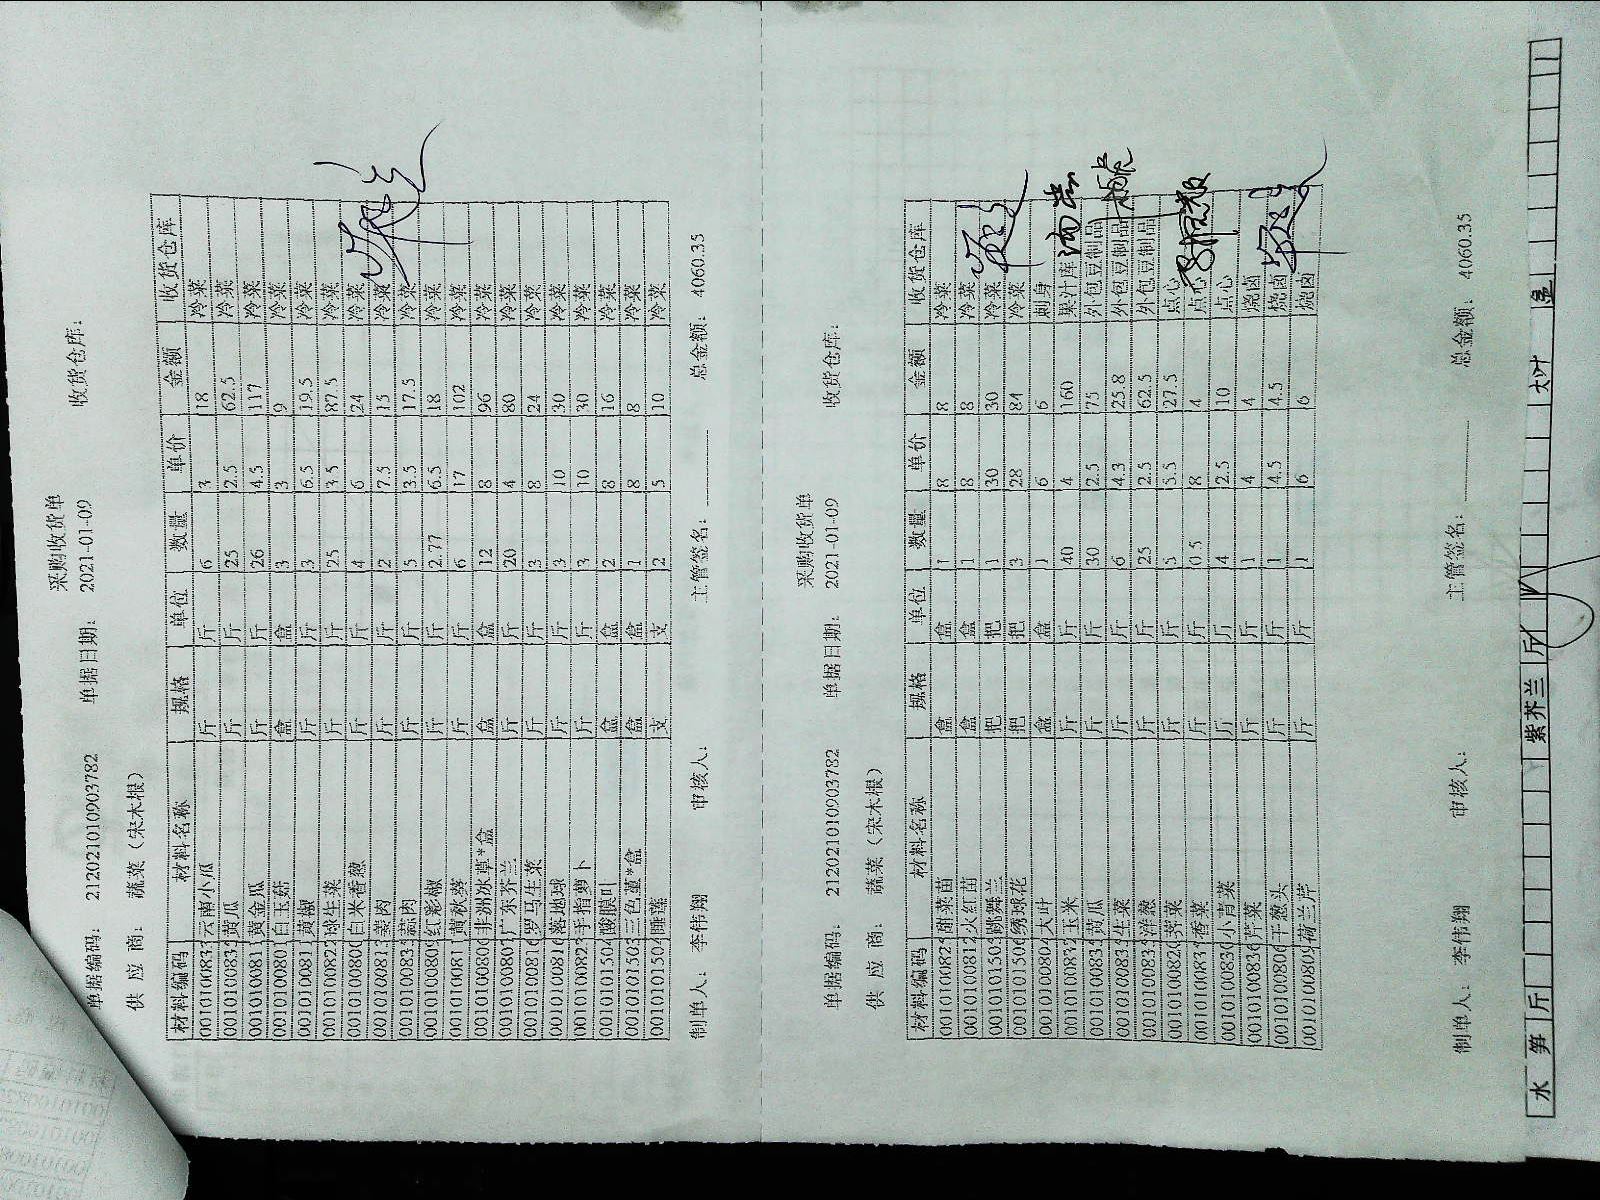 采购收货单
单据编码： 212021010903782 单据日期： 2021-01-09 收货仓库：
供 应 商： 蔬菜（宋木根）
材料编码 材料名称 规格 单位 数量 单价 金额 收货仓库
0010100833 云南小瓜 斤 斤 6 3 18 冷菜
0010100833 黄瓜 斤 斤 25 2.5 62.5 冷菜
001010081 黄金瓜 斤 斤 26 4.5 117 冷菜
001010080 白玉菇 盒 盒 3 3 9 冷菜
001010081 黄椒 斤 斤 3 6.5 19.5 冷菜
001010082 球生菜 斤 斤 25 3.5 87.5 冷菜
001010080 白米香葱 斤 斤 4 6 24 冷菜
001010081 姜肉 斤 斤 2 7.5 15 冷菜
001010083 蒜肉 斤 斤 5 3.5 17.5 冷菜
001010080 红彩椒 斤 斤 2.77 6.5 18 冷菜
001010081 黄秋葵 斤 斤 6 17 102 冷菜
001010080 非洲冰草*盒 盒 盒 12 8 96 冷菜
001010080 广东芥兰 斤 斤 20 4 80 冷菜
001010081 罗马生菜 斤 斤 3 8 24 冷菜
001010081 落地球 斤 斤 3 10 30 冷菜
001010082 手指萝卜 斤 斤 3 10 30 冷菜
001010150 酸膜叶 盒 盒 2 8 16 冷菜
001010150 三色堇*盒 盒 盒 1 8 8 冷菜
001010150 睡莲 支 支 2 5 10 冷菜
制单人： 李伟翔 审核人： 主管签名： 总金额： 4060.35
采购收货单
单据编码： 212021010903782 单据日期： 2021-01-09 收货仓库：
供 应 商： 蔬菜（宋木根）
材料编码 材料名称 规格 单位 数量 单价 金额 收货仓库
001010082 甜菜苗 盒 盒 1 8 8 冷菜
001010081 火红苗 盒 盒 1 8 8 冷菜
001010150 跳舞兰 把 把 1 30 30 冷菜
001010150 绣球花 把 把 3 28 84 冷菜
001010080 大叶 盒 盒 1 6 6 刺身
001010083 玉米 斤 斤 40 4 160 果汁库
001010083 黄瓜 斤 斤 30 2.5 75 外包豆制品
001010083 生菜 斤 斤 6 4.3 25.8 外包豆制品
001010083 洋葱 斤 斤 25 2.5 62.5 外包豆制品
001010082 荠菜 斤 斤 5 5.5 27.5 点心
001010083 香菜 斤 斤 0.5 8 4 点心
001010083 小青菜 斤 斤 4 2.5 10 点心
001010083 芹菜 斤 斤 1 4 4 烧卤
001010080 干葱头 斤 斤 1 4.5 4.5 烧卤
001010080 荷兰芹 斤 斤 1 6 6 烧卤
制单人： 李伟翔 审核人： 主管签名： 总金额： 4060.35
水 笋 斤 紫芥兰 斤 大叶